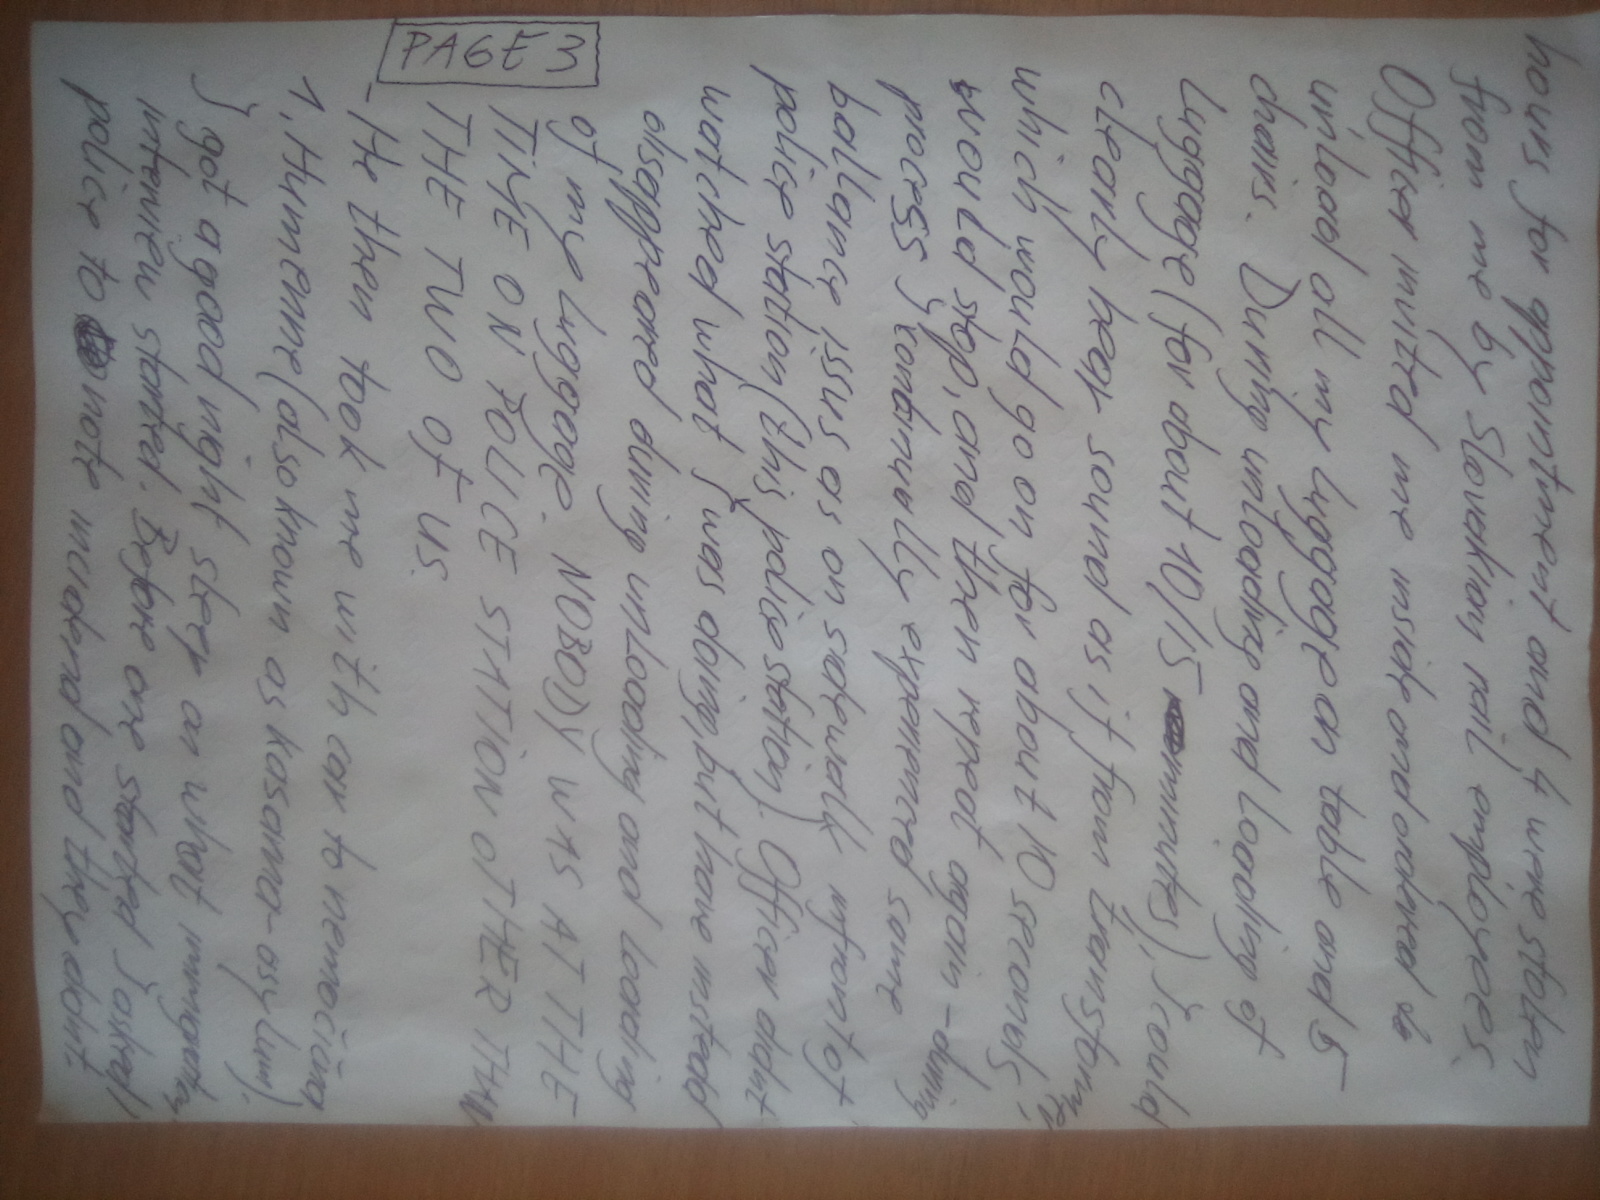 hours for appointment and 4 were stolen
from me by Slovakian rail employees.
Officer invited me inside and ordered to
unload all my luggage on table and 5
chairs. During unloading and loading of
luggage (for about 10/15 minutes), I could
clearly hear sound as if from transformer,
which would go on for about 10 seconds,
would stop, and then repeat again - during
process I continually experienced same
ballance issus as on sidewalk infront of
police station (this police station). Officer didnt
watched what I was doing, but have instead
disappeared during unloading and loading
of my luggage. NOBODY WAS AT THE
TIME ON POLICE STATION OTHER THAN
THE TWO OF US.
- He then took me with car to nemocnica
1, Humenne (also known as kasarna-asylum).
I got a good night sleep on what immigration
interview started. Before one started I asked
police to note incidend and they didnt.
PAGE 3